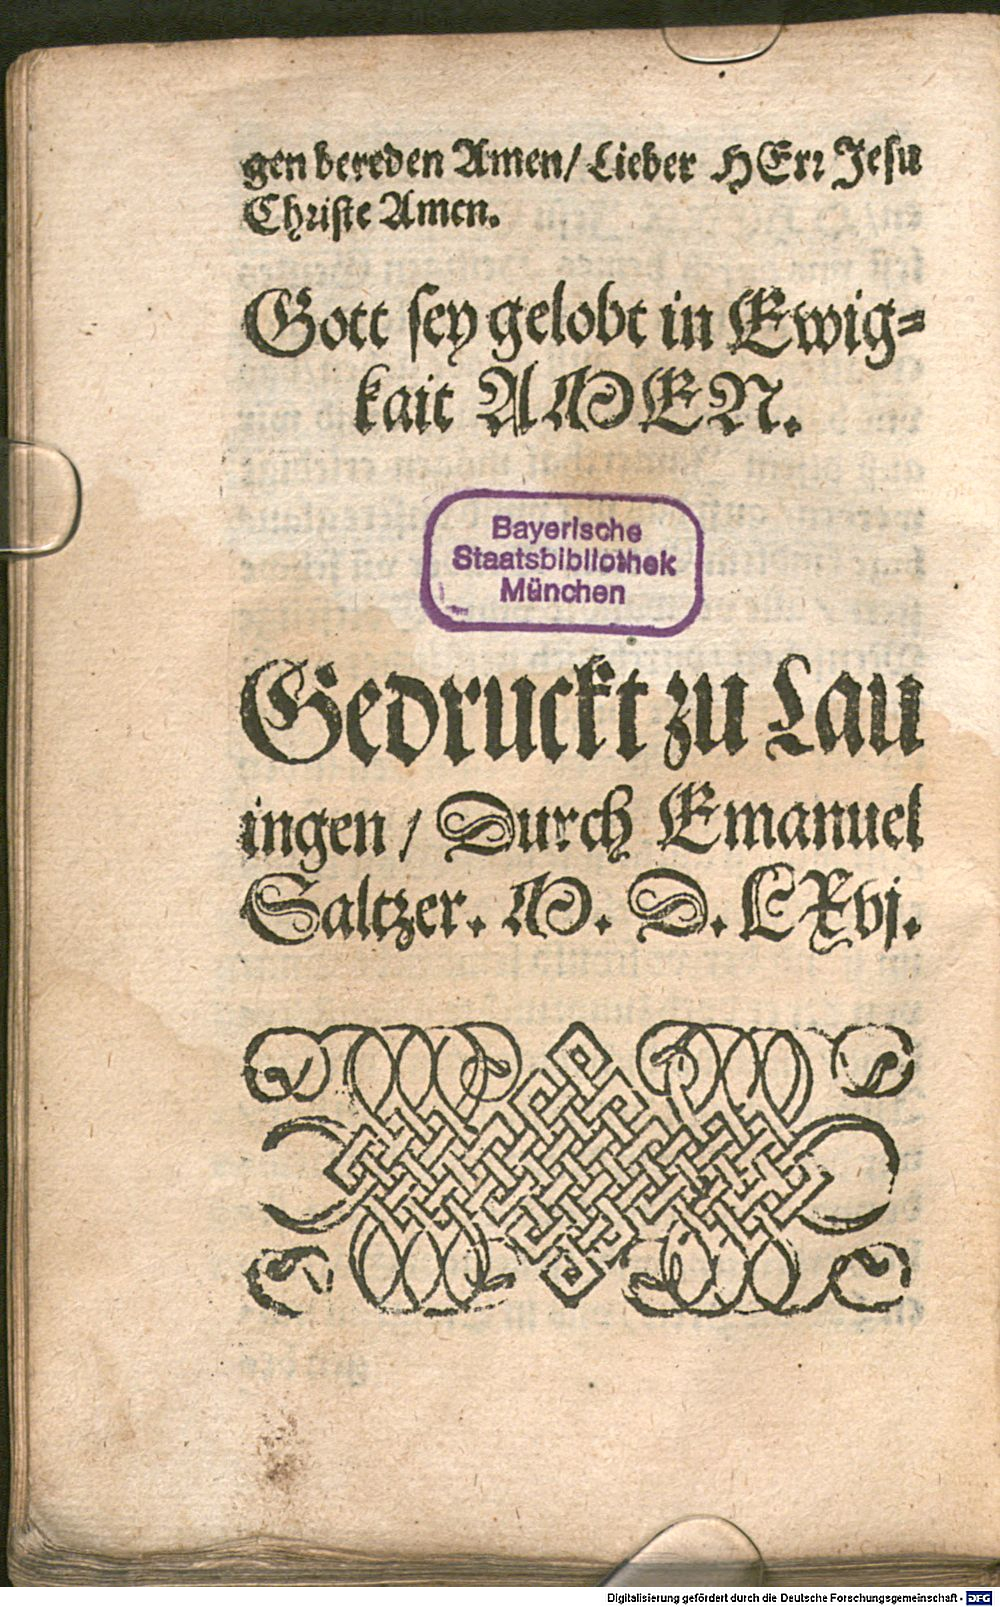 gen bereden Amen/ Lieber HErr Jesu
Christe Amen.
Gott sey gelobt in Ewig=
kait AMEN.
Bayerische
Staatsbibliothek
München
Gedruckt zu Lau
ingen/ Durch Emanuel
Saltzer. M. D. LXvj.
Digitalisierung gefördert durch die Deutsche Forschungsgemeinschaft - DFG